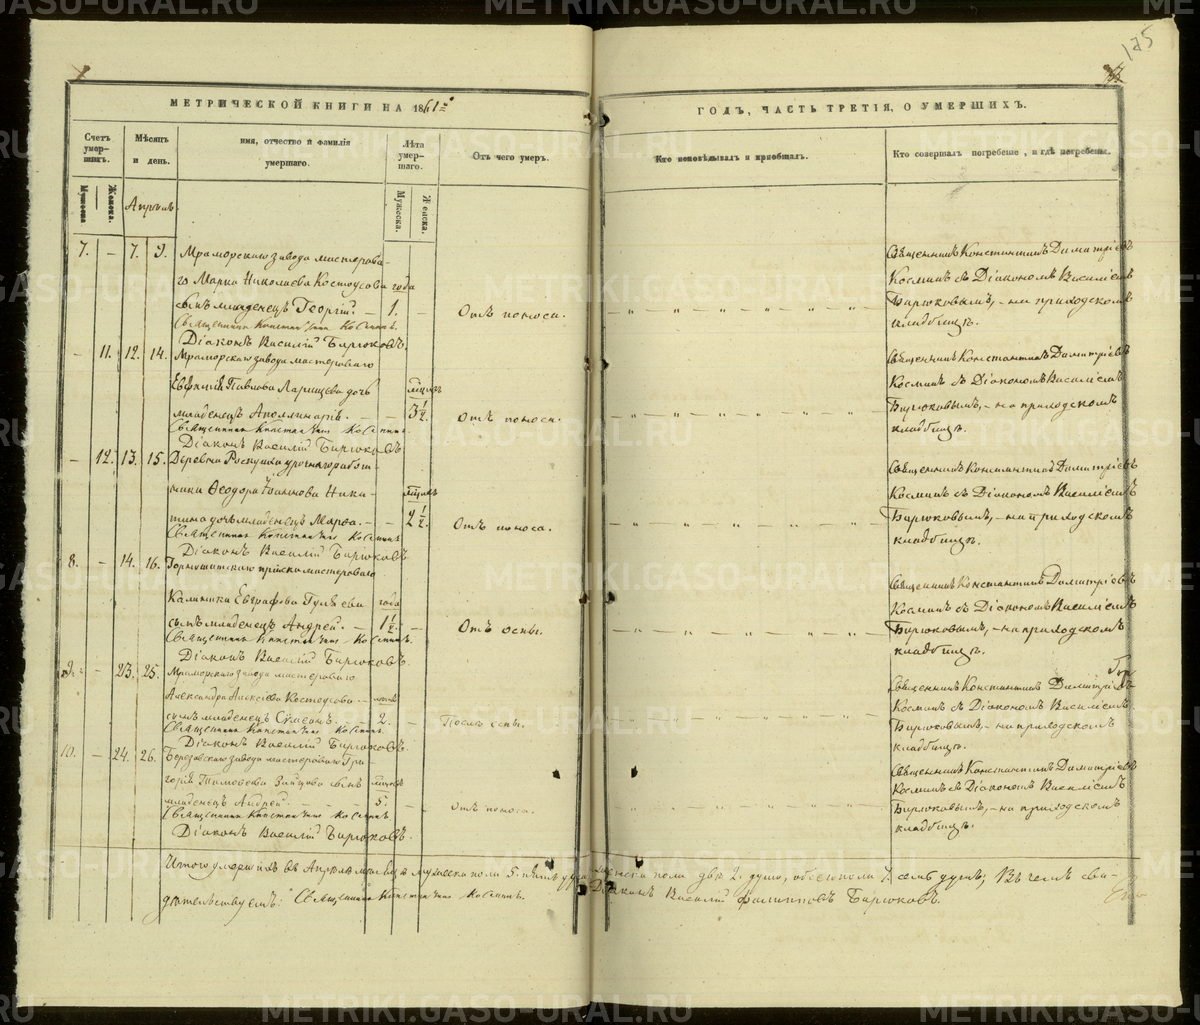 METRIKI.GASO-URAL.RU
175
МЕТРИЧЕСКОЙ КНИГИ НА 1861й
ГОДЪ, ЧАСТЬ ТРЕТІЯ, О УМЕРШИХЪ.
Счетъ умершихъ.
Мѣсяцъ и день.
имя, отчество и фамилія умершаго.
Лѣта умершаго.
Отъ чего умеръ.
Кто исповѣдывалъ и пріобщалъ.
Кто совершалъ погребеніе, и гдѣ погребены.
Мужеска
Женска.
Мужеска.
Женска.
Апрѣль.
7. — 7. 9. Мраморскаго завода мастерова-
го Марка Николаева Костоусова года
сынъ младенецъ Георгій. — 1. Отъ поноса.
Священникъ Константинъ Косминъ.
Діаконъ Василій Бирюковъ.
Священникъ Константинъ Димитріевъ
Косминъ съ Діакономъ Василіемъ
Бирюковымъ, — на приходскомъ
кладбищѣ.
— 11. 12. 14. Мраморскаго завода мастероваго
Павлова Ларищева дочь мѣсяцъ
младенецъ Аполлинарія. — — 3 1/2. Отъ поноса.
Священникъ Константинъ Косминъ.
Діаконъ Василій Бирюковъ.
Священникъ Константинъ Димитріевъ
Косминъ съ Діакономъ Василіемъ
Бирюковымъ, — на приходскомъ
кладбищѣ.
— 12. 13. 15. Деревни урочнаго работ-
ника Ѳеодора Иванова Ники- мѣсяцъ
тина дочь младенецъ Марѳа. — — 2 1/2. Отъ поноса.
Священникъ Константинъ Косминъ
Діаконъ Василій Бирюковъ
Священникъ Константинъ Димитріевъ
Косминъ съ Діакономъ Василіемъ
Бирюковымъ, — на приходскомъ
кладбищѣ.
8. — 14. 16. Горнощитскаго пріиска мастероваго
Калиника Евграфова Гуляева года
сынъ младенецъ Андрей. — 1 1/2. — Отъ оспы.
Священникъ Константинъ Косминъ.
Діаконъ Василій Бирюковъ.
Священникъ Константинъ Димитріевъ
Косминъ съ Діакономъ Василіемъ
Бирюковымъ, — на приходскомъ
кладбищѣ.
9. — 23. 25. Мраморскаго завода мастероваго
Александра Алексѣева Костоусова
сынъ младенецъ Сѵмеонъ. — 2. — Послѣ оспы.
Священникъ Константинъ Косминъ.
Діаконъ Василій Бирюковъ.
Священникъ Константинъ Димитріевъ
Косминъ съ Діакономъ Василіемъ
Бирюковымъ, — на приходскомъ
кладбищѣ.
10. — 24. 26. Березовскаго завода мастероваго Гри-
горія Тимоѳеева Зайцова сынъ мѣсяцъ
младенецъ Андрей. — 5. — Отъ поноса.
Священникъ Константинъ Косминъ
Діаконъ Василій Бирюковъ.
Священникъ Константинъ Димитріевъ
Косминъ съ Діакономъ Василіемъ
Бирюковымъ, — на приходскомъ
кладбищѣ.
Итого умершихъ въ Апрѣлѣ мѣсяцѣ мужеска пола 5. пять душъ, женска пола двѣ 2. души, обоего пола 7. семь душъ; Въ чемъ сви-
дѣтельствуемъ: Священникъ Константинъ Косминъ.
Діаконъ Василій Филипповъ Бирюковъ.